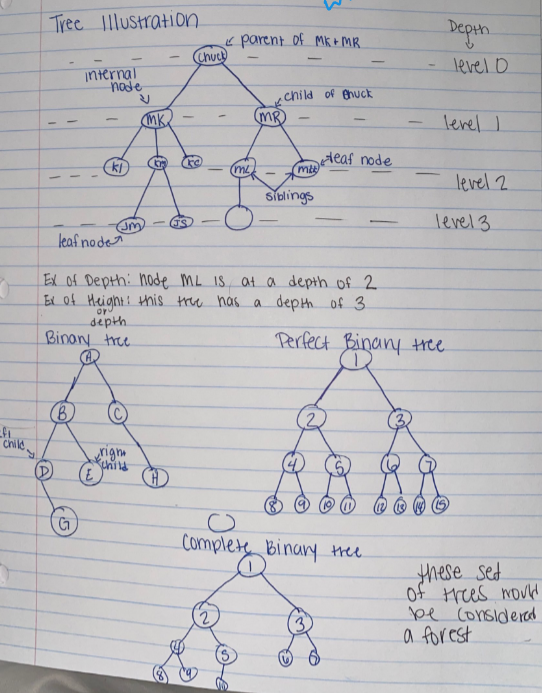 Tree Illustration
Depth
parent of MK+MR
Chuck
level 0
internal
node
child of Chuck
MK
MR
level 1
KC
ML
leaf node
level 2
siblings
JM
JS
level 3
leaf node
Ex of Depth: node ML is at a depth of 2
Ex of Height: this tree has a depth of 3
or
depth
Binary tree
Perfect Binary tree
A
1
B
C
2
3
child
right
child
D
E
H
4
5
6
7
G
8
9
10
11
12
13
14
15
Complete Binary tree
1
these set
of trees would
be considered
a forest
2
3
4
5
6
8
9
10